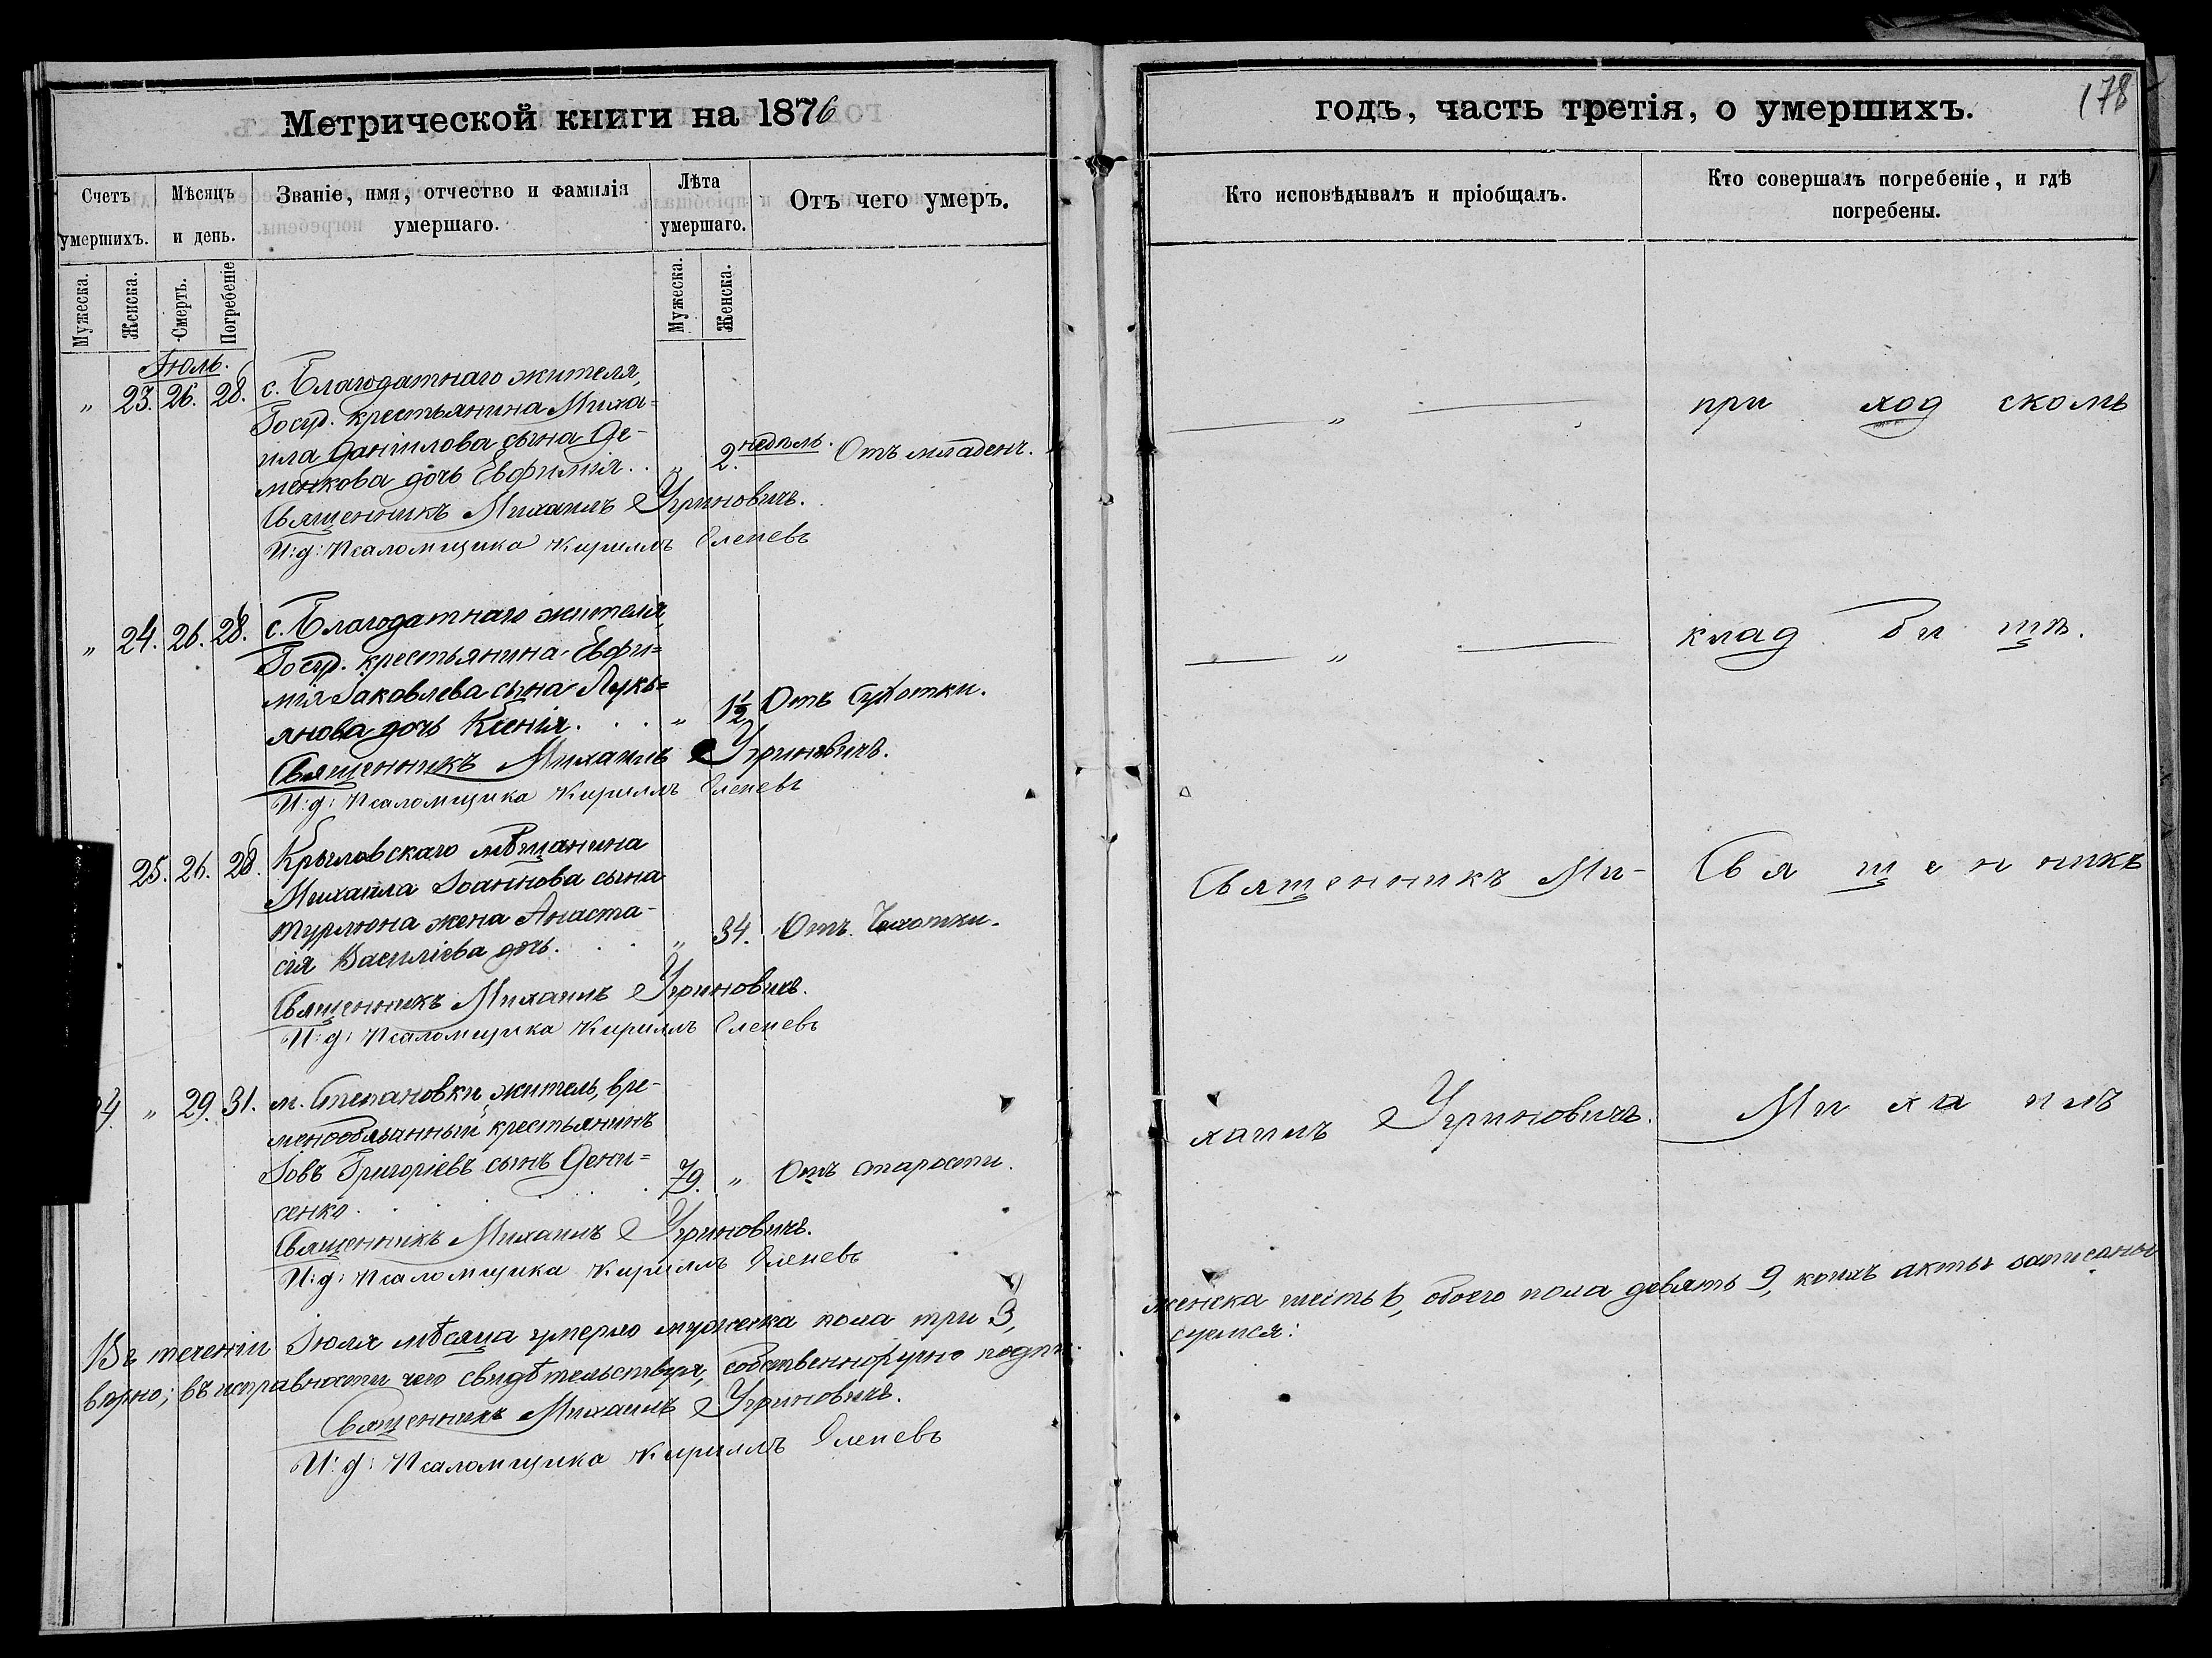 Метрической книги на 1876
годъ, часть третія, о умершихъ.
178
Счетъ умершихъ.
Мѣсяцъ и день.
Званіе, имя, отчество и фамилія умершаго.
Лѣта умершаго.
Отъ чего умеръ.
Кто исповѣдывалъ и пріобщалъ.
Кто совершалъ погребеніе, и гдѣ погребены.
Мужеска.
Женска.
Смерть.
Погребеніе
Мужеска.
Женска.
Іюль.
„ 23. 26. 28. с. Благодатнаго жителя,
Госуд. крестьянина Миха=
ила Даніилова сына Де-
менкова дочь Евфимія. . „ 2. недѣль. Отъ младенч.
Священникъ Михаилъ Угриновичъ.
И: д: Псаломщика Кириллъ
„ 24. 26. 28. с. Благодатнаго жителя,
Госуд. крестьянина Евфи=
мія Іаковлева сына Лукь=
янова дочь Ксенія. . . „ 1½ Отъ Сухотки.
Священникъ Михаилъ Угриновичъ.
И: д: Псаломщика Кириллъ
25. 26. 28. Крыловскаго мѣщанина
Михаила Іоаннова сына
Турлюна жена Анаста-
сія Василіева дочь. . . „ 34. Отъ Чахотки.
Священникъ Михаилъ Угриновичъ.
И: д: Псаломщика Кириллъ
4. „ 29. 31. м. Степановки житель, вре-
меннообязанный крестьянинъ
Іовъ Григоріевъ сынъ Дени=
сенко. . . . . 79. „ Отъ старости.
Священникъ Михаилъ Угриновичъ.
И: д: Псаломщика Кириллъ
Въ теченіи Іюля мѣсяца умерло мужеска пола три 3,
вѣрно; въ исправности чего свидѣтельствуя, собственноручно подпи-
Священникъ Михаилъ Угриновичъ.
И: д: Псаломщика Кириллъ
— „ —
при ход скомъ
— „ —
клад би щѣ.
Священникъ Ми-
Свя ще н никъ
хаилъ Угриновичъ.
Ми ха илъ
женска шесть 6, обоего пола девять 9, коихъ акты записаны
суемся: